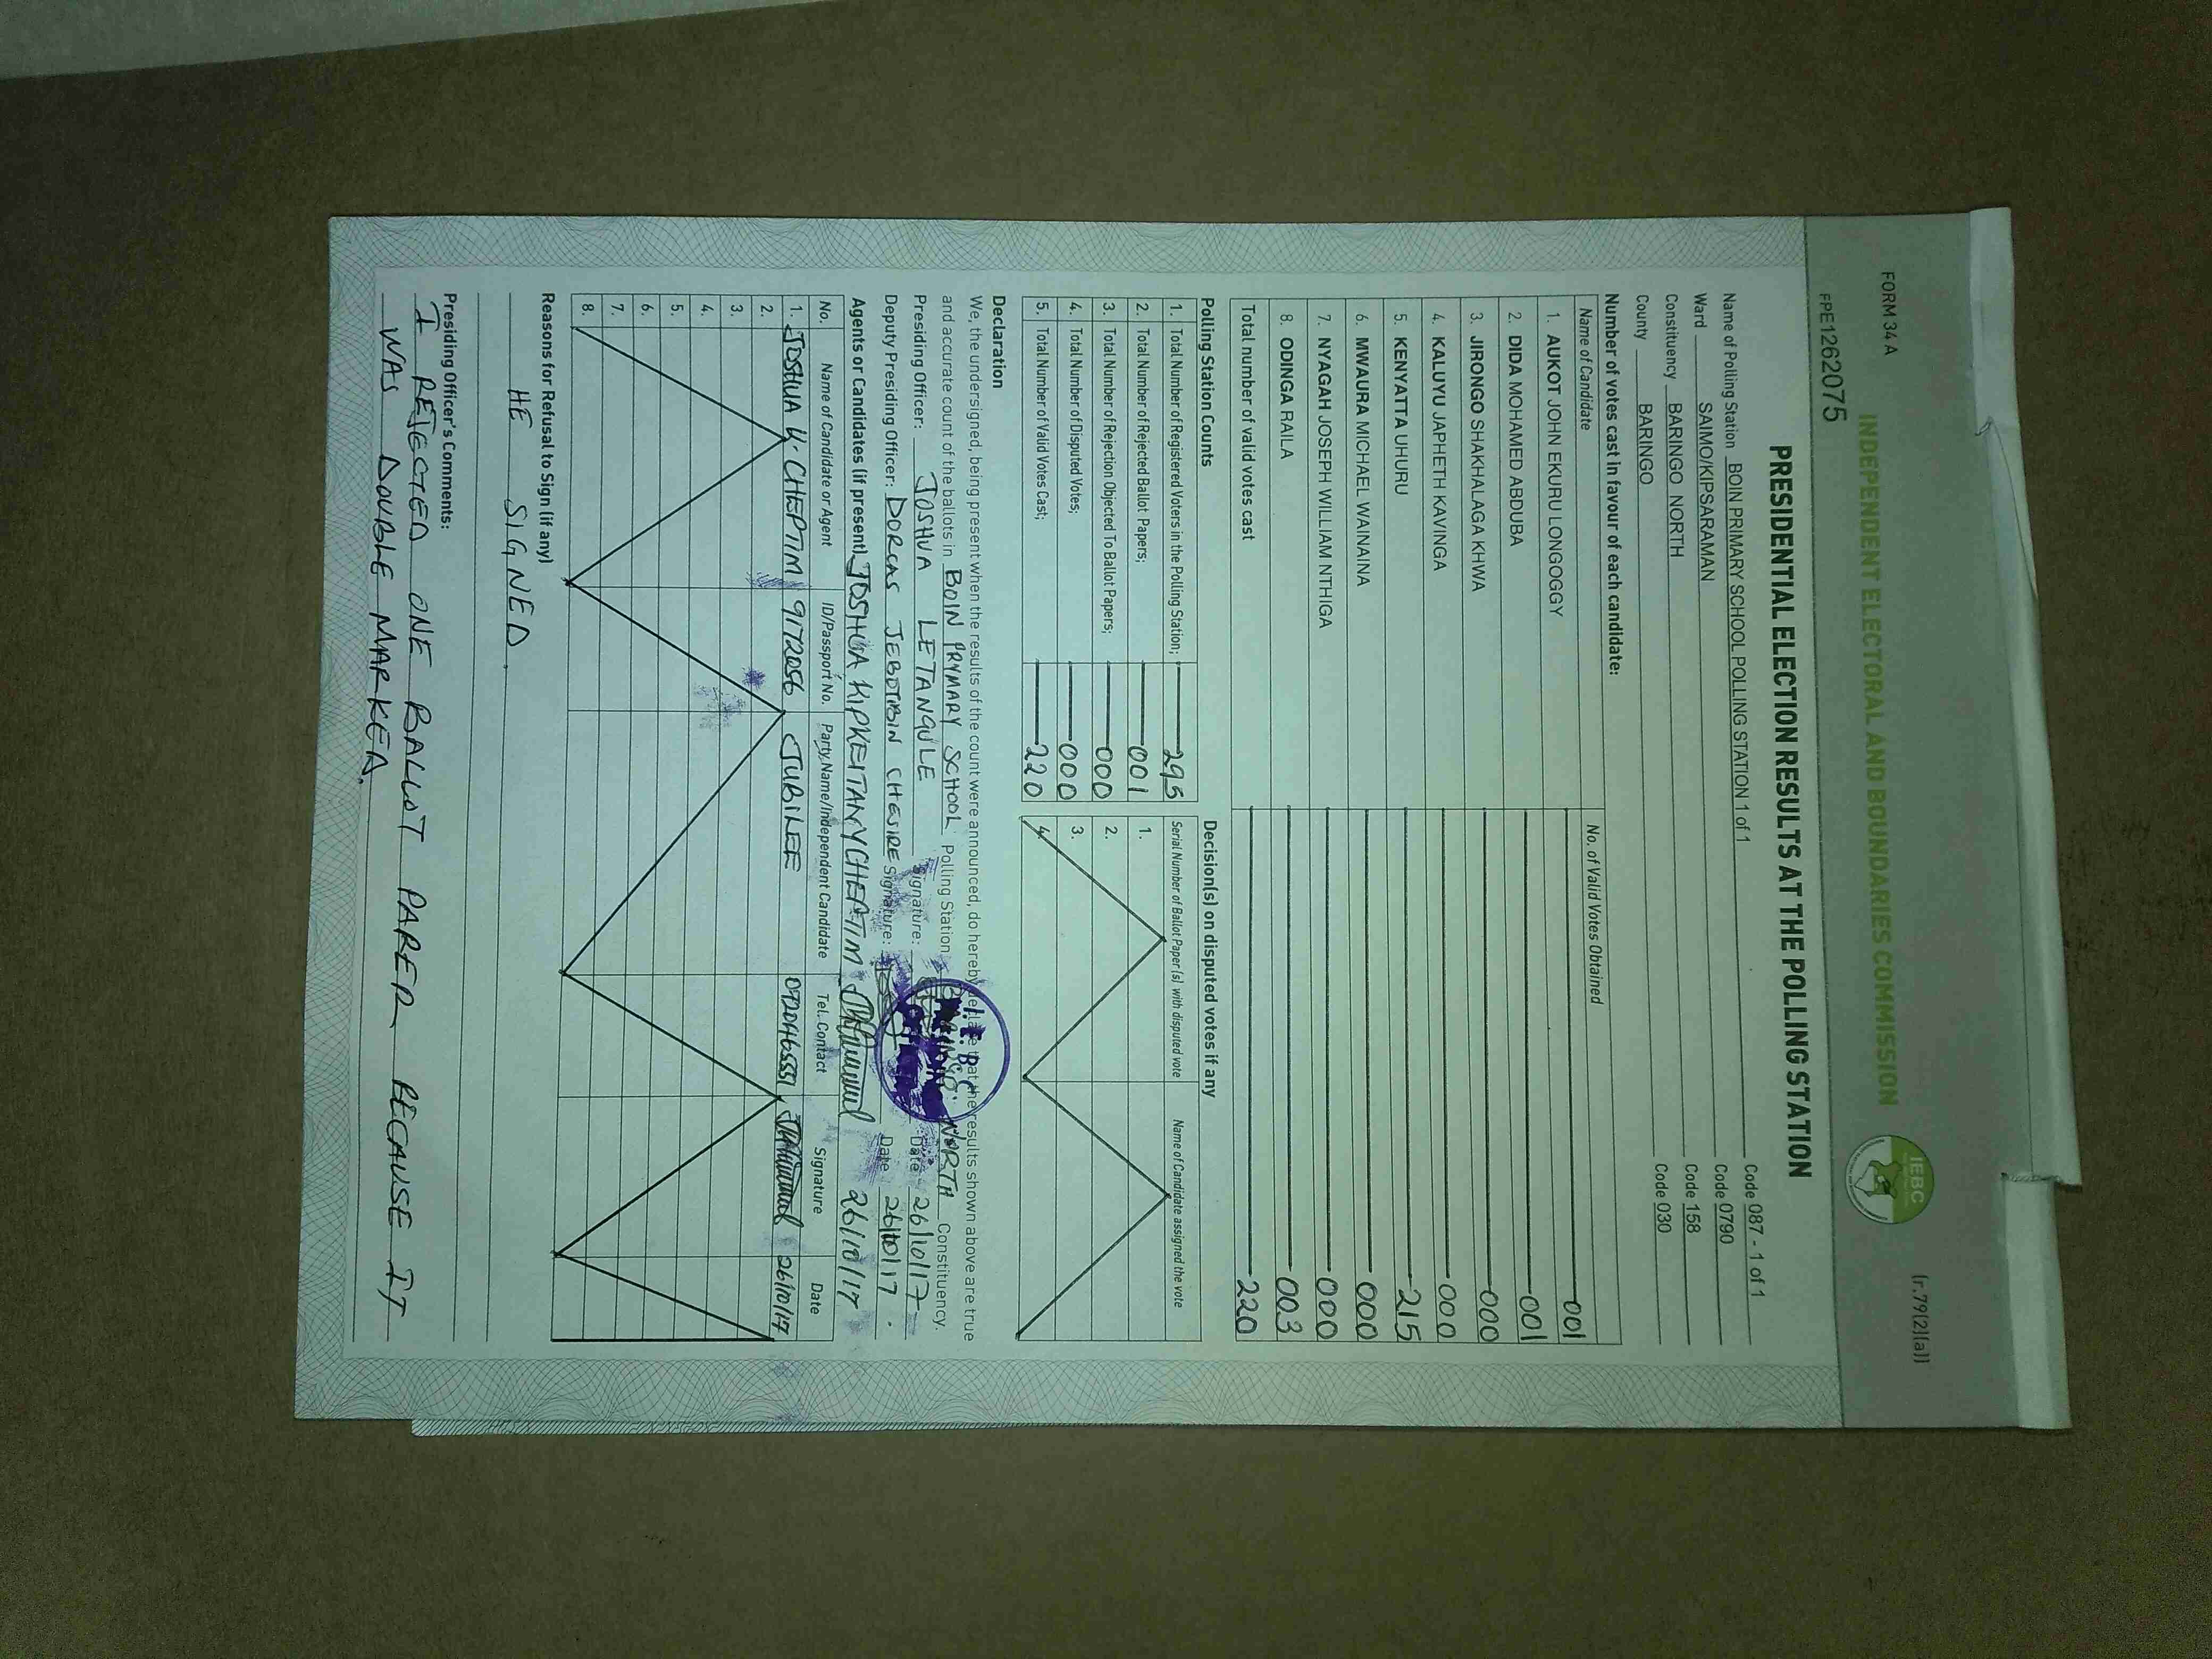 FORM 34 A
(r.79(2)(a))
INDEPENDENT ELECTORAL AND BOUNDARIES COMMISSION
IEBC
FPE1262075
PRESIDENTIAL ELECTION RESULTS AT THE POLLING STATION
Name of Polling Station BOIN PRIMARY SCHOOL POLLING STATION 1 of 1 Code 087 - 1 of 1
Ward SAIMO/KIPSARAMAN Code 0790
Constituency BARINGO NORTH Code 158
County BARINGO Code 030
Number of votes cast in favour of each candidate:
Name of Candidate No. of Valid Votes Obtained
1. AUKOT JOHN EKURU LONGOGGY 001
2. DIDA MOHAMED ABDUBA 001
3. JIRONGO SHAKHALAGA KHWA 000
4. KALUYU JAPHETH KAVINGA 000
5. KENYATTA UHURU 215
6. MWAURA MICHAEL WAINAINA 000
7. NYAGAH JOSEPH WILLIAM NTHIGA 000
8. ODINGA RAILA 003
Total number of valid votes cast 220
Polling Station Counts
1. Total Number of Registered Voters in the Polling Station; 295
2. Total Number of Rejected Ballot Papers; 001
3. Total Number of Rejection Objected To Ballot Papers; 000
4. Total Number of Disputed Votes; 000
5. Total Number of Valid Votes Cast; 220
Decision(s) on disputed votes if any
Serial Number of Ballot Paper (s) with disputed vote Name of Candidate assigned the vote
1.
2.
3.
4.
Declaration
We, the undersigned, being present when the results of the count were announced, do hereby declare that the results shown above are true
and accurate count of the ballots in BOIN PRYMARY SCHOOL Polling Station BARINGO NORTH Constituency.
Presiding Officer: JOSHUA LETANGULE Signature: Date 26/10/17
Deputy Presiding Officer: DORCAS JEBOTIBIN CHESIRE Signature: Date 26/10/17.
I.E.B.C.
Agents or Candidates (if present) JOSHUA KIPKEITANY CHEPTIM 26/10/17
No. Name of Candidate or Agent ID/Passport No. Party Name/Independent Candidate Tel. Contact Signature Date
1. JOSHUA K. CHEPTIM 9172056 JUBILEE 0720465551 26/10/17
2.
3.
4.
5.
6.
7.
8.
Reasons for Refusal to Sign (if any)
HE SIGNED.
Presiding Officer's Comments:
I REJECTED ONE BALLOT PAPER BECAUSE IT
WAS DOUBLE MARKED.